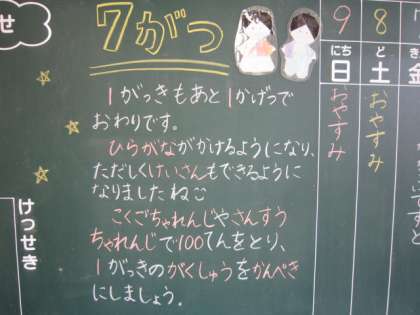 せ
7がつ
1がっきもあと1かげつで
おわりです。
ひらがながかけるようになり、
ただしくけいさんもできるように
なりましたね
こくごちゃれんじやさんすう
ちゃれんじで100てんをとり、
1がっきのがくしゅうをかんぺき
にしましょう。
9
にち
日
おやすみ
8
ど
土
おやすみ
金
けっせき